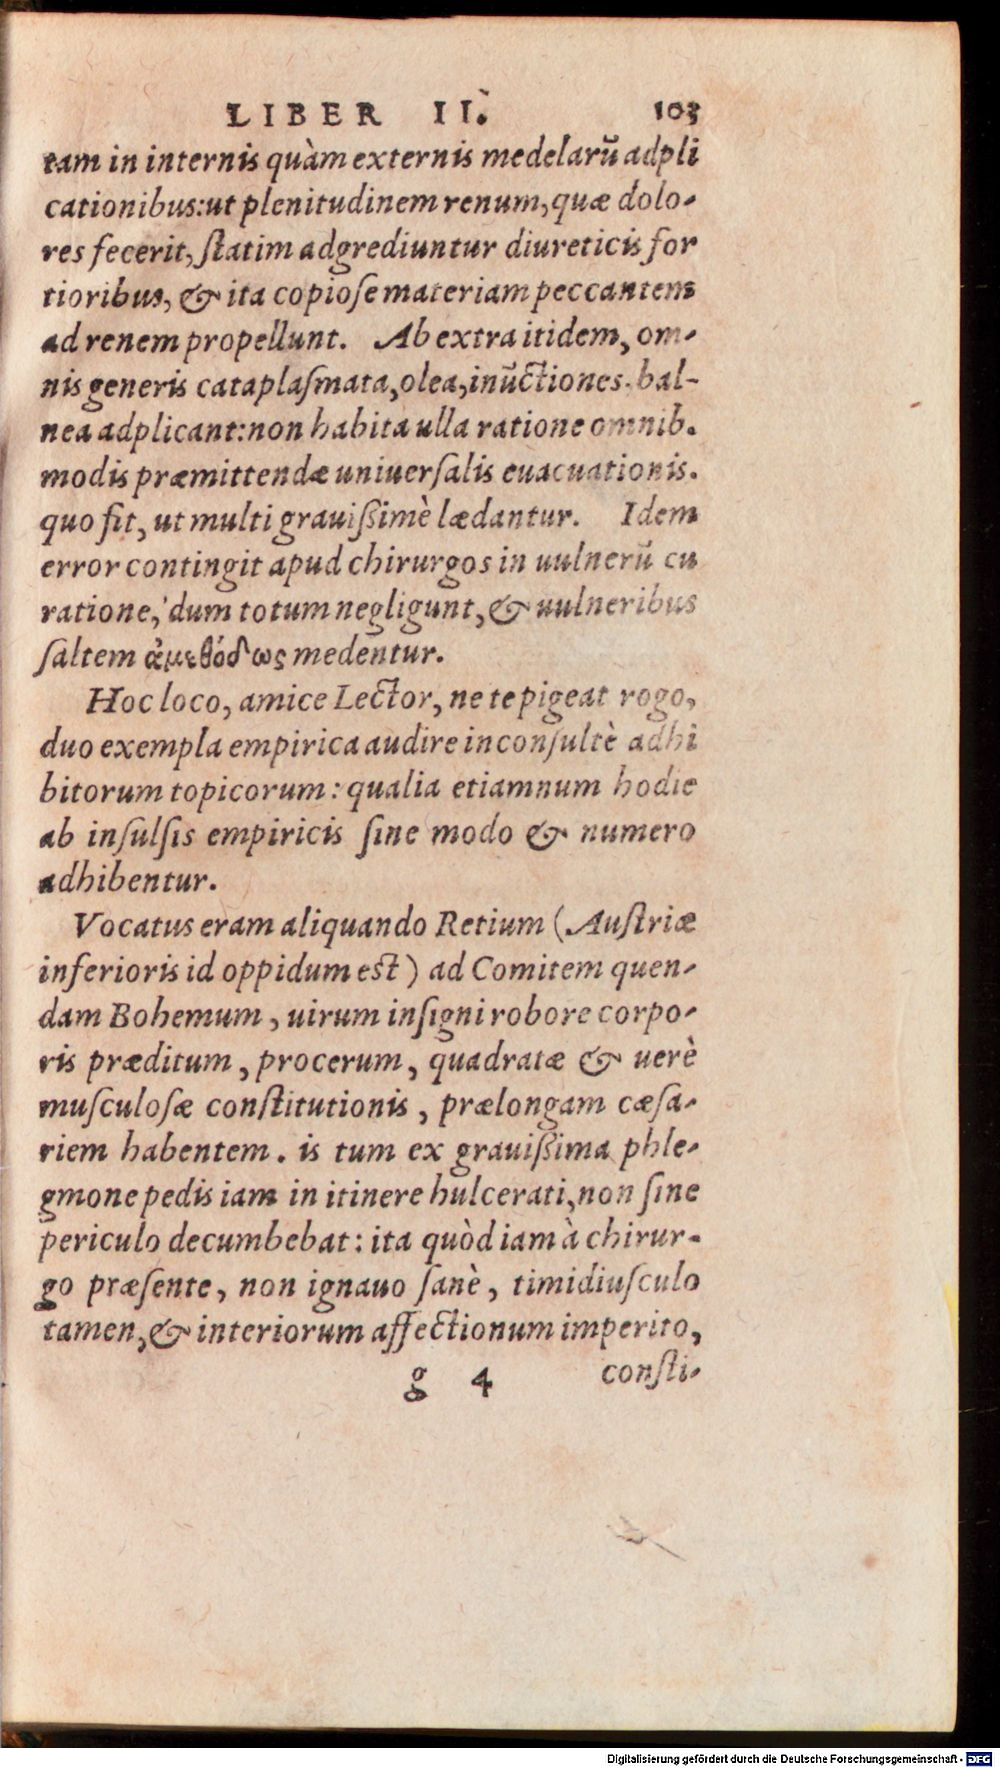 LIBER II. 103
tam in internis quàm externis medelarũ adpli
cationibus:ut plenitudinem renum, quæ dolo-
res fecerit, ſtatim adgrediuntur diureticis for
tioribus, & ita copioſe materiam peccantem
ad renem propellunt. Ab extra itidem, om-
nis generis cataplaſmata, olea, inũctiones, bal-
nea adplicant: non habita ulla ratione omnib.
modis præmittendæ uniuerſalis euacuationis.
quo fit, ut multi grauiſsimè lædantur. Idem
error contingit apud chirurgos in uulnerũ cu
ratione, dum totum negligunt, & uulneribus
ſaltem ἀμεθόδως medentur.
Hoc loco, amice Lector, ne te pigeat rogo,
duo exempla empirica audire inconſultè adhi
bitorum topicorum: qualia etiamnum hodie
ab inſulſis empiricis ſine modo & numero
adhibentur.
Vocatus eram aliquando Retium (Auſtriæ
inferioris id oppidum est) ad Comitem quen-
dam Bohemum, uirum inſigni robore corpo-
ris præditum, procerum, quadratæ & uerè
muſculoſæ conſtitutionis, prælongam cæſa-
riem habentem. is tum ex grauiſsima phle-
gmone pedis iam in itinere hulcerati, non ſine
periculo decumbebat: ita quòd iam à chirur-
go præſente, non ignauo ſanè, timidiuſculo
tamen, & interiorum affectionum imperito,
g 4 conſti-
Digitalisierung gefördert durch die Deutsche Forschungsgemeinschaft - DFG